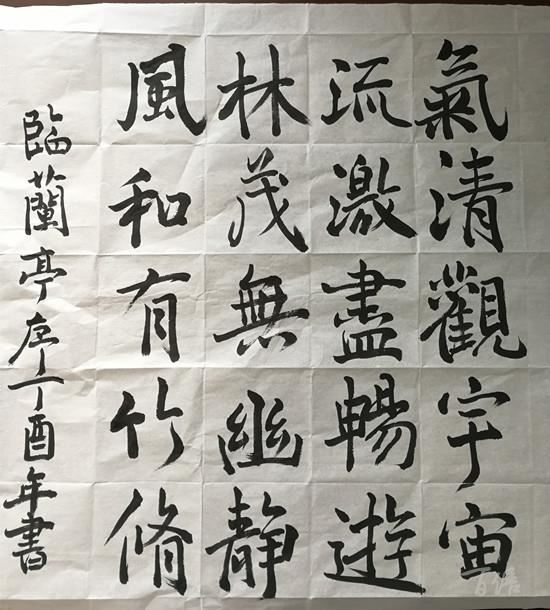 氣清觀宇宙
流激盡暢遊
林茂無幽靜
風和有竹脩
臨蘭亭序丁酉年書